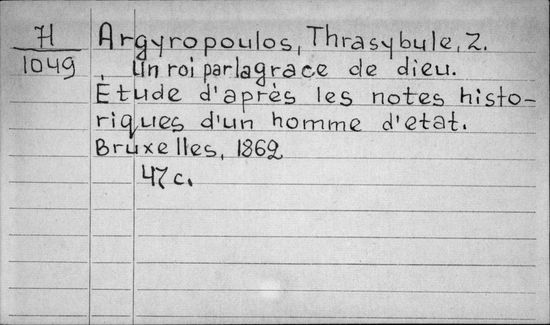 H
1049
Argyropoulos, Thrasybule, Z.
Un roi par la grace de dieu.
Étude d'après les notes histo-
riques d'un homme d'etat.
Bruxelles, 1862
47 c.